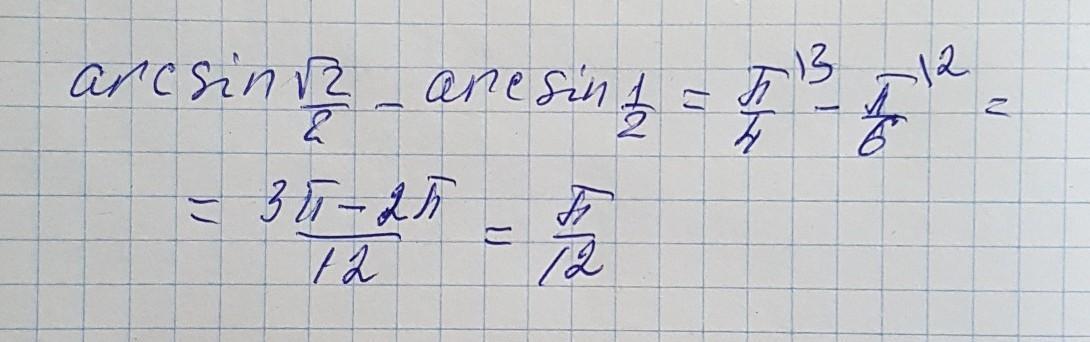 arcsin √2/2 - arcsin 1/2 = π/4 \3 - π/6 \2 =
= 3π - 2π/12 = π/12